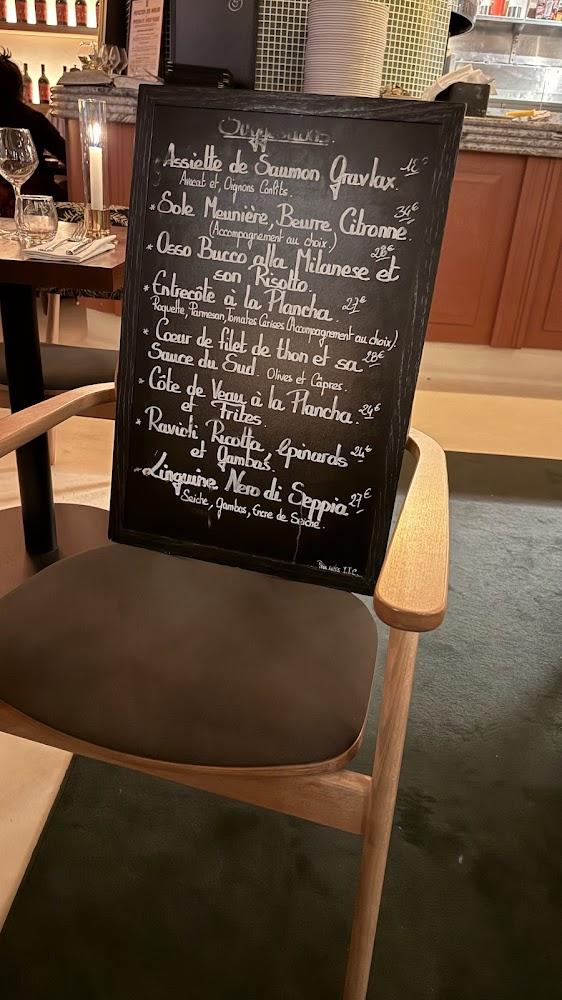 Suggestions.
Assiette de Saumon Gravlax. 18€
Avocat et, Oignons Confits.
* Sole Meunière, Beurre Citronné. 34€
(Accompagnement au choix.)
* Osso Bucco alla Milanese et 28€
son Risotto.
* Entrecôte à la Plancha. 27€
Roquette, Parmesan, Tomates Cerises (Accompagnement au choix).
* Cœur de filet de thon et sa 28€
Sauce du Sud. Olives et Câpres.
* Côte de Veau à la Plancha. 24€
et Frites.
* Ravioli Ricotta, Epinards 24€
et Gambas.
* Linguine Nero di Seppia 27€
Seiche, Gambas, Encre de Seiche.
T.T.C.